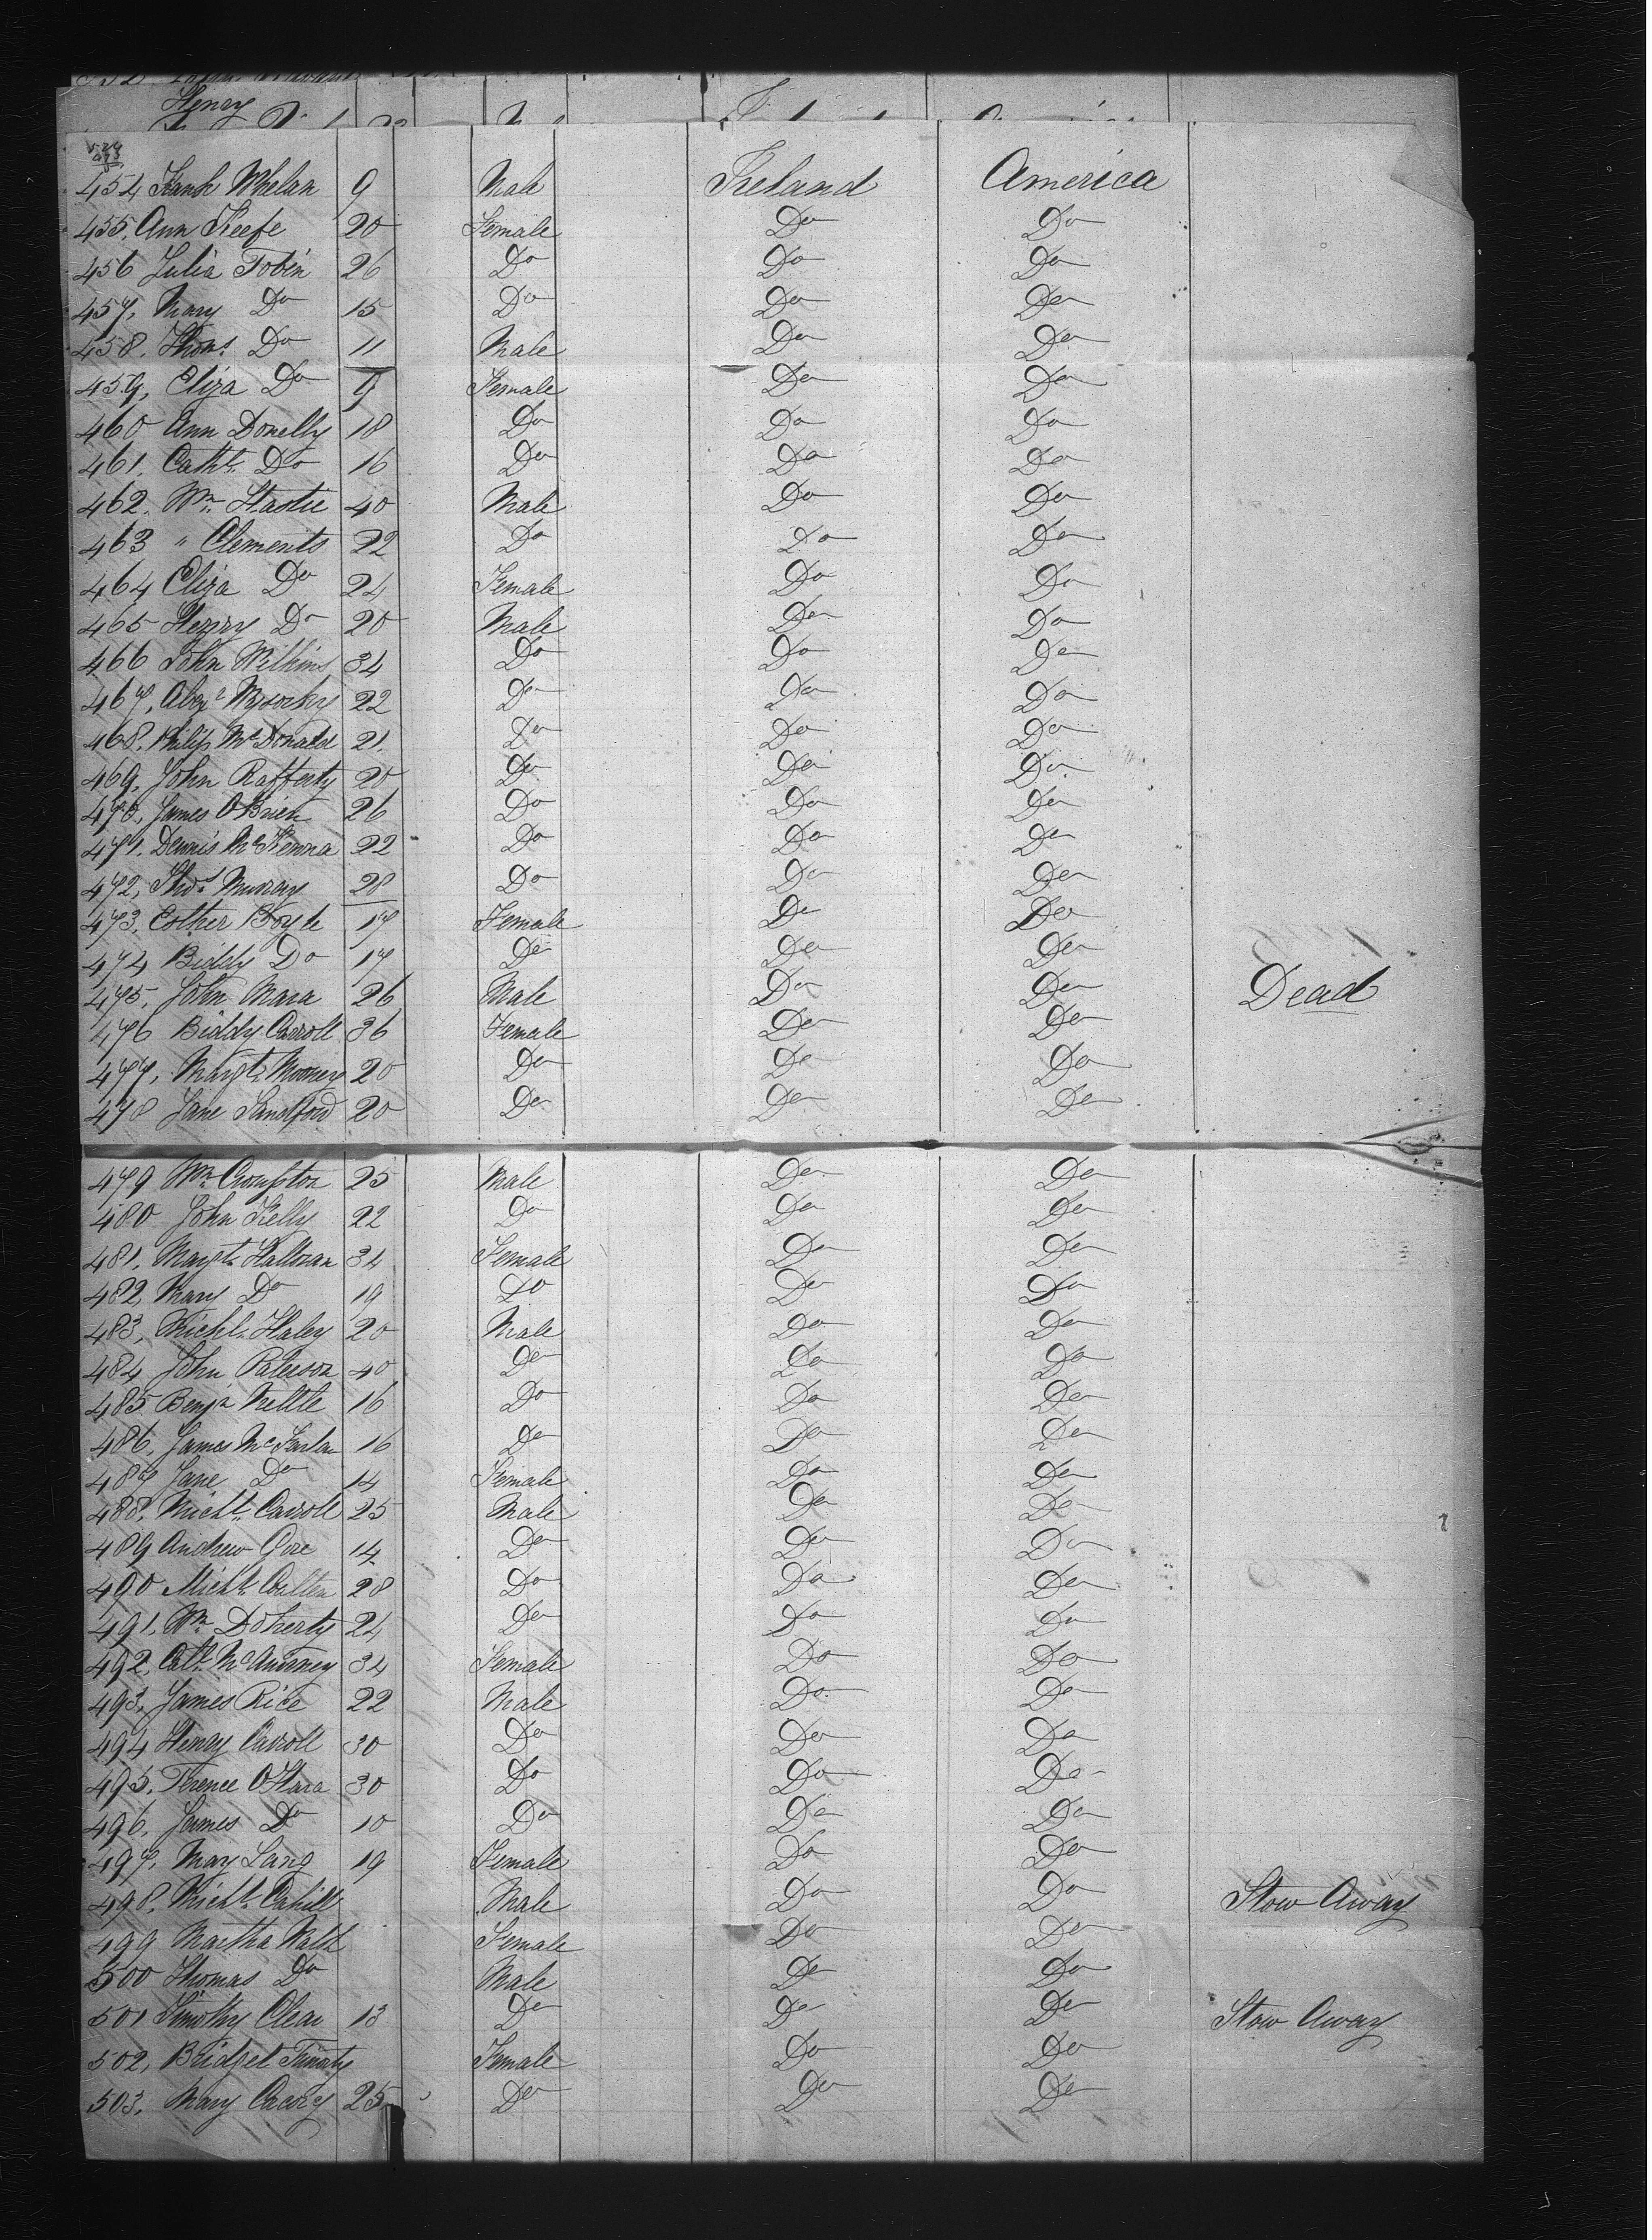 Henry
524
473
454 Frank Whelan 9 Male Ireland America
455. Ann Keefe 20 Female Do Do
456 Julia Tobin 26 Do Do Do
457, Mary Do 15 Do Do Do
458. Thos. Do 11 Male Do Do
459, Eliza Do 9 Female Do Do
460 Ann Donelly 18 Do Do Do
461. Cathe. Do 16 Do Do Do
462. Wm. 40 Male Do Do
463 " Clements 22 Do Do Do
464 Eliza Do 24 Female Do Do
465 Henry Do 20 Male Do Do
466 John Wilkins 34 Do Do Do
467, 22 Do Do Do
468. Philip McDonald 21. Do Do Do
469, John Rafferty 20 Do Do Do
470, James OBrien 26 Do Do Do
471. Dennis McKenna 22 Do Do Do
472, Thos. Murray 28 Do Do Do
473. Esther Boyle 17 Female Do Do
474 Biddy Do 17 Do Do Do
475, John Mara 26 Male Do Do Dead
476 Biddy Carroll 36 Female Do Do
477, Margt. Mooney 20 Do Do Do
478 Jane Sandford 20 Do Do Do
479 Wm. Crompton 25 Male Do Do
480 John Kelly 22 Do Do Do
481. Margt. Halloran 34 Female Do Do
482, Mary Do 19 Do Do Do
483, Michl. Haley 20 Male Do Do
484 John Paterson 40 Do Do Do
485. Benjn Nettle 16 Do Do Do
486, James 16 Do Do Do
487 Jane Do 14 Female Do Do
488. Michl. Carroll 25 Male Do Do
489 Andrew Gore 14 Do Do Do
490 Michl. 28 Do Do Do
491. Wm. Doherty 24 Do Do Do
492, Cathe. 34 Female Do Do
493, James Rice 22 Male Do Do
494 Henry Carroll 30 Do Do Do
495. Terence OHara 30 Do Do Do
496, James Do 10 Do Do Do
497, Mary Lang 19 Female Do Do
498. Michl. Cahill Male Do Do Stow Away
499 Martha Female Do Do
500 Thomas Do Male Do Do
501 Timothy Clear 13 Do Do Do Stow Away
502, Bridget Female Do Do
503. Mary 25 Do Do Do